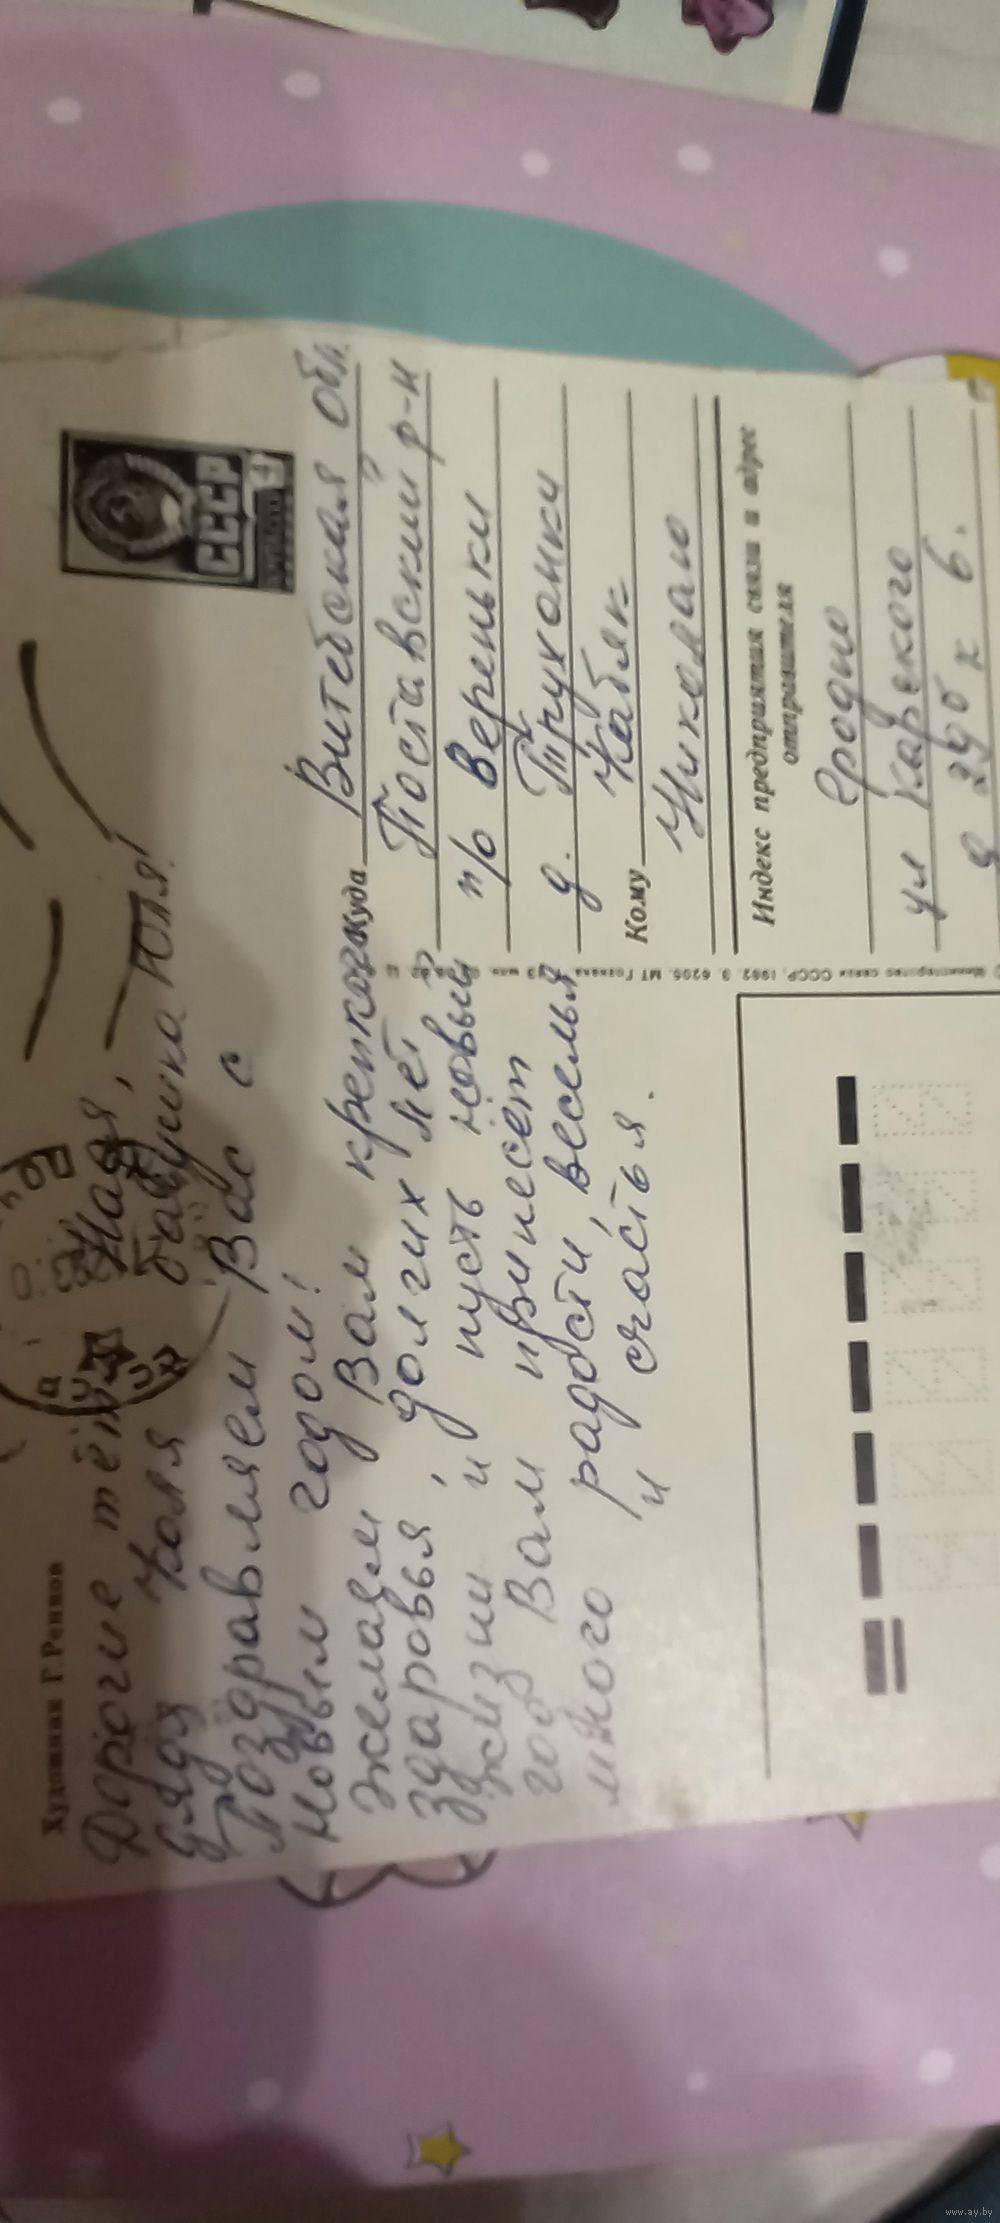 Художник Г. Ренков
Дорогие тётя Ная,
дядя Коля бабушка Юля!
Поздравляем Вас с
новым годом!
желаем Вам крепкого
здаровья, долгих лет
жизни и пусть новый
год Вам принесёт
много радости, веселья
и счастья.
СССР
Куда Витебская обл.
Поставский р-н
п/о Вереньки
д. Труханки
Кому Кабяк
Николаю
Индекс предприятия связи и адрес
отправителя
Гродно
ул Карского
д 29б к 6.
Министерство связи СССР, 1982. З. 6205. МТ Гознака.
www.ay.by